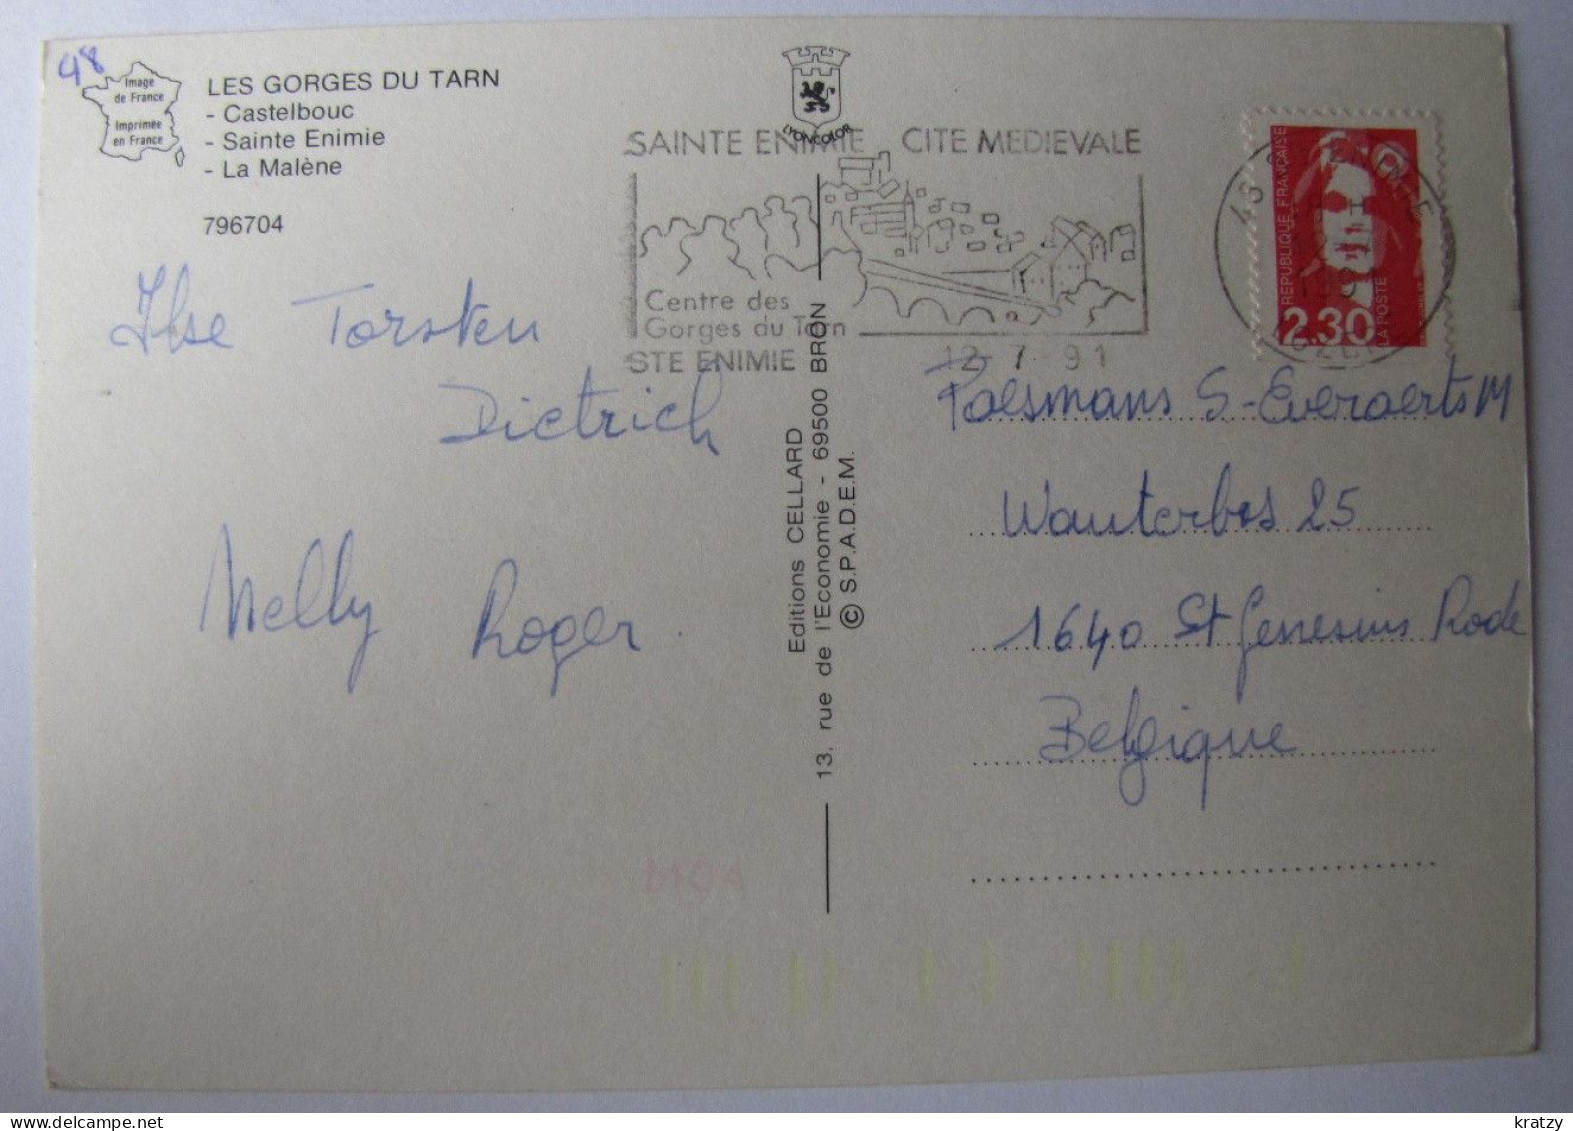 48
Image
de France
Imprimée
en France
LES GORGES DU TARN
- Castelbouc
- Sainte Enimie
- La Malène
796704
LYONCOLOR
SAINTE ENIMIE CITE MEDIEVALE
Centre des
Gorges du Tarn
STE ENIMIE
12-7-91
REPUBLIQUE FRANÇAISE
2.30
LA POSTE
Ilse Torsten
Dietrich
Nelly Roger
Editions CELLARD
13, rue de l'Economie - 69500 BRON
© S.P.A.D.E.M.
Paesmans S-Everaerts M
Wauterbos 25
1640 St Genesius Rode
Belgique
kratzy